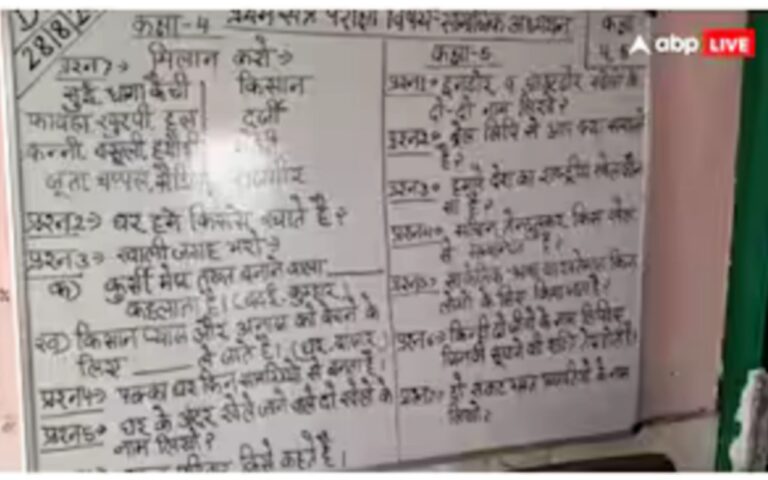 28/8/2
कक्षा-4 प्रथम सत्र परीक्षा विषय-सामाजिक अध्ययन
कक्षा
4, 5
abp LIVE
प्रश्न1→ मिलान करो→
सुई धागा कैंची किसान
फावड़ा, खुरपी, हल दर्जी
कन्नी, बसूली, हथौड़ी मोची
जूता चप्पल, राजगीर
प्रश्न2→ घर हमें किससे बचाते है?
प्रश्न3→ खाली जगह भरो→
क) कुर्सी मेज तख्त बनाने वाला
कहलाता है। (बढ़ई, कुम्हार)
ख) किसान प्याज और अनाज को बेचने के
लिए ____ ले जाते है। (घर, बाजार)
प्रश्न4→ पक्का घर किन सामग्रियों से बनता है।
प्रश्न5→ घर के अंदर खेले जाने वाले दो खेलों के
नाम लिखो?
किसे कहते है।
कक्षा-5
प्रश्न1→ इनडोर व आउटडोर खेलों के
दो-दो नाम लिखो?
प्रश्न2→ ब्रेल लिपि से आप क्या समझते
है?
प्रश्न3→ हमारे देश का राष्ट्रीय खेल कौन
सा है?
प्रश्न4→ सचिन तेन्दुलकर किस खेल
से सम्बन्धित है।
प्रश्न5→ सांकेतिक भाषा का प्रयोग किन
लोगों के लिए किया जाता है?
प्रश्न6→ किन्हीं दो जीवों के नाम लिखिए
जिनकी सूंघने की शक्ति तेज होती।
प्रश्न7→ दो के नाम
लिखो?